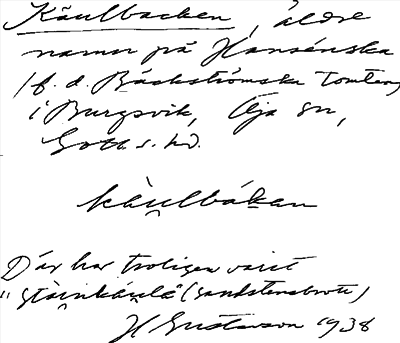 Käulbacken, äldre
namn på Hansénska
(f. d. Bäckströmska tomten)
i Burgsvik, Öja sn,
Gotl. s. hd.
kàu̯lbákan
Där har troligen varit
"stäi̯nkáu̯lä" (sandstensbrott)
H Gustavson 1938